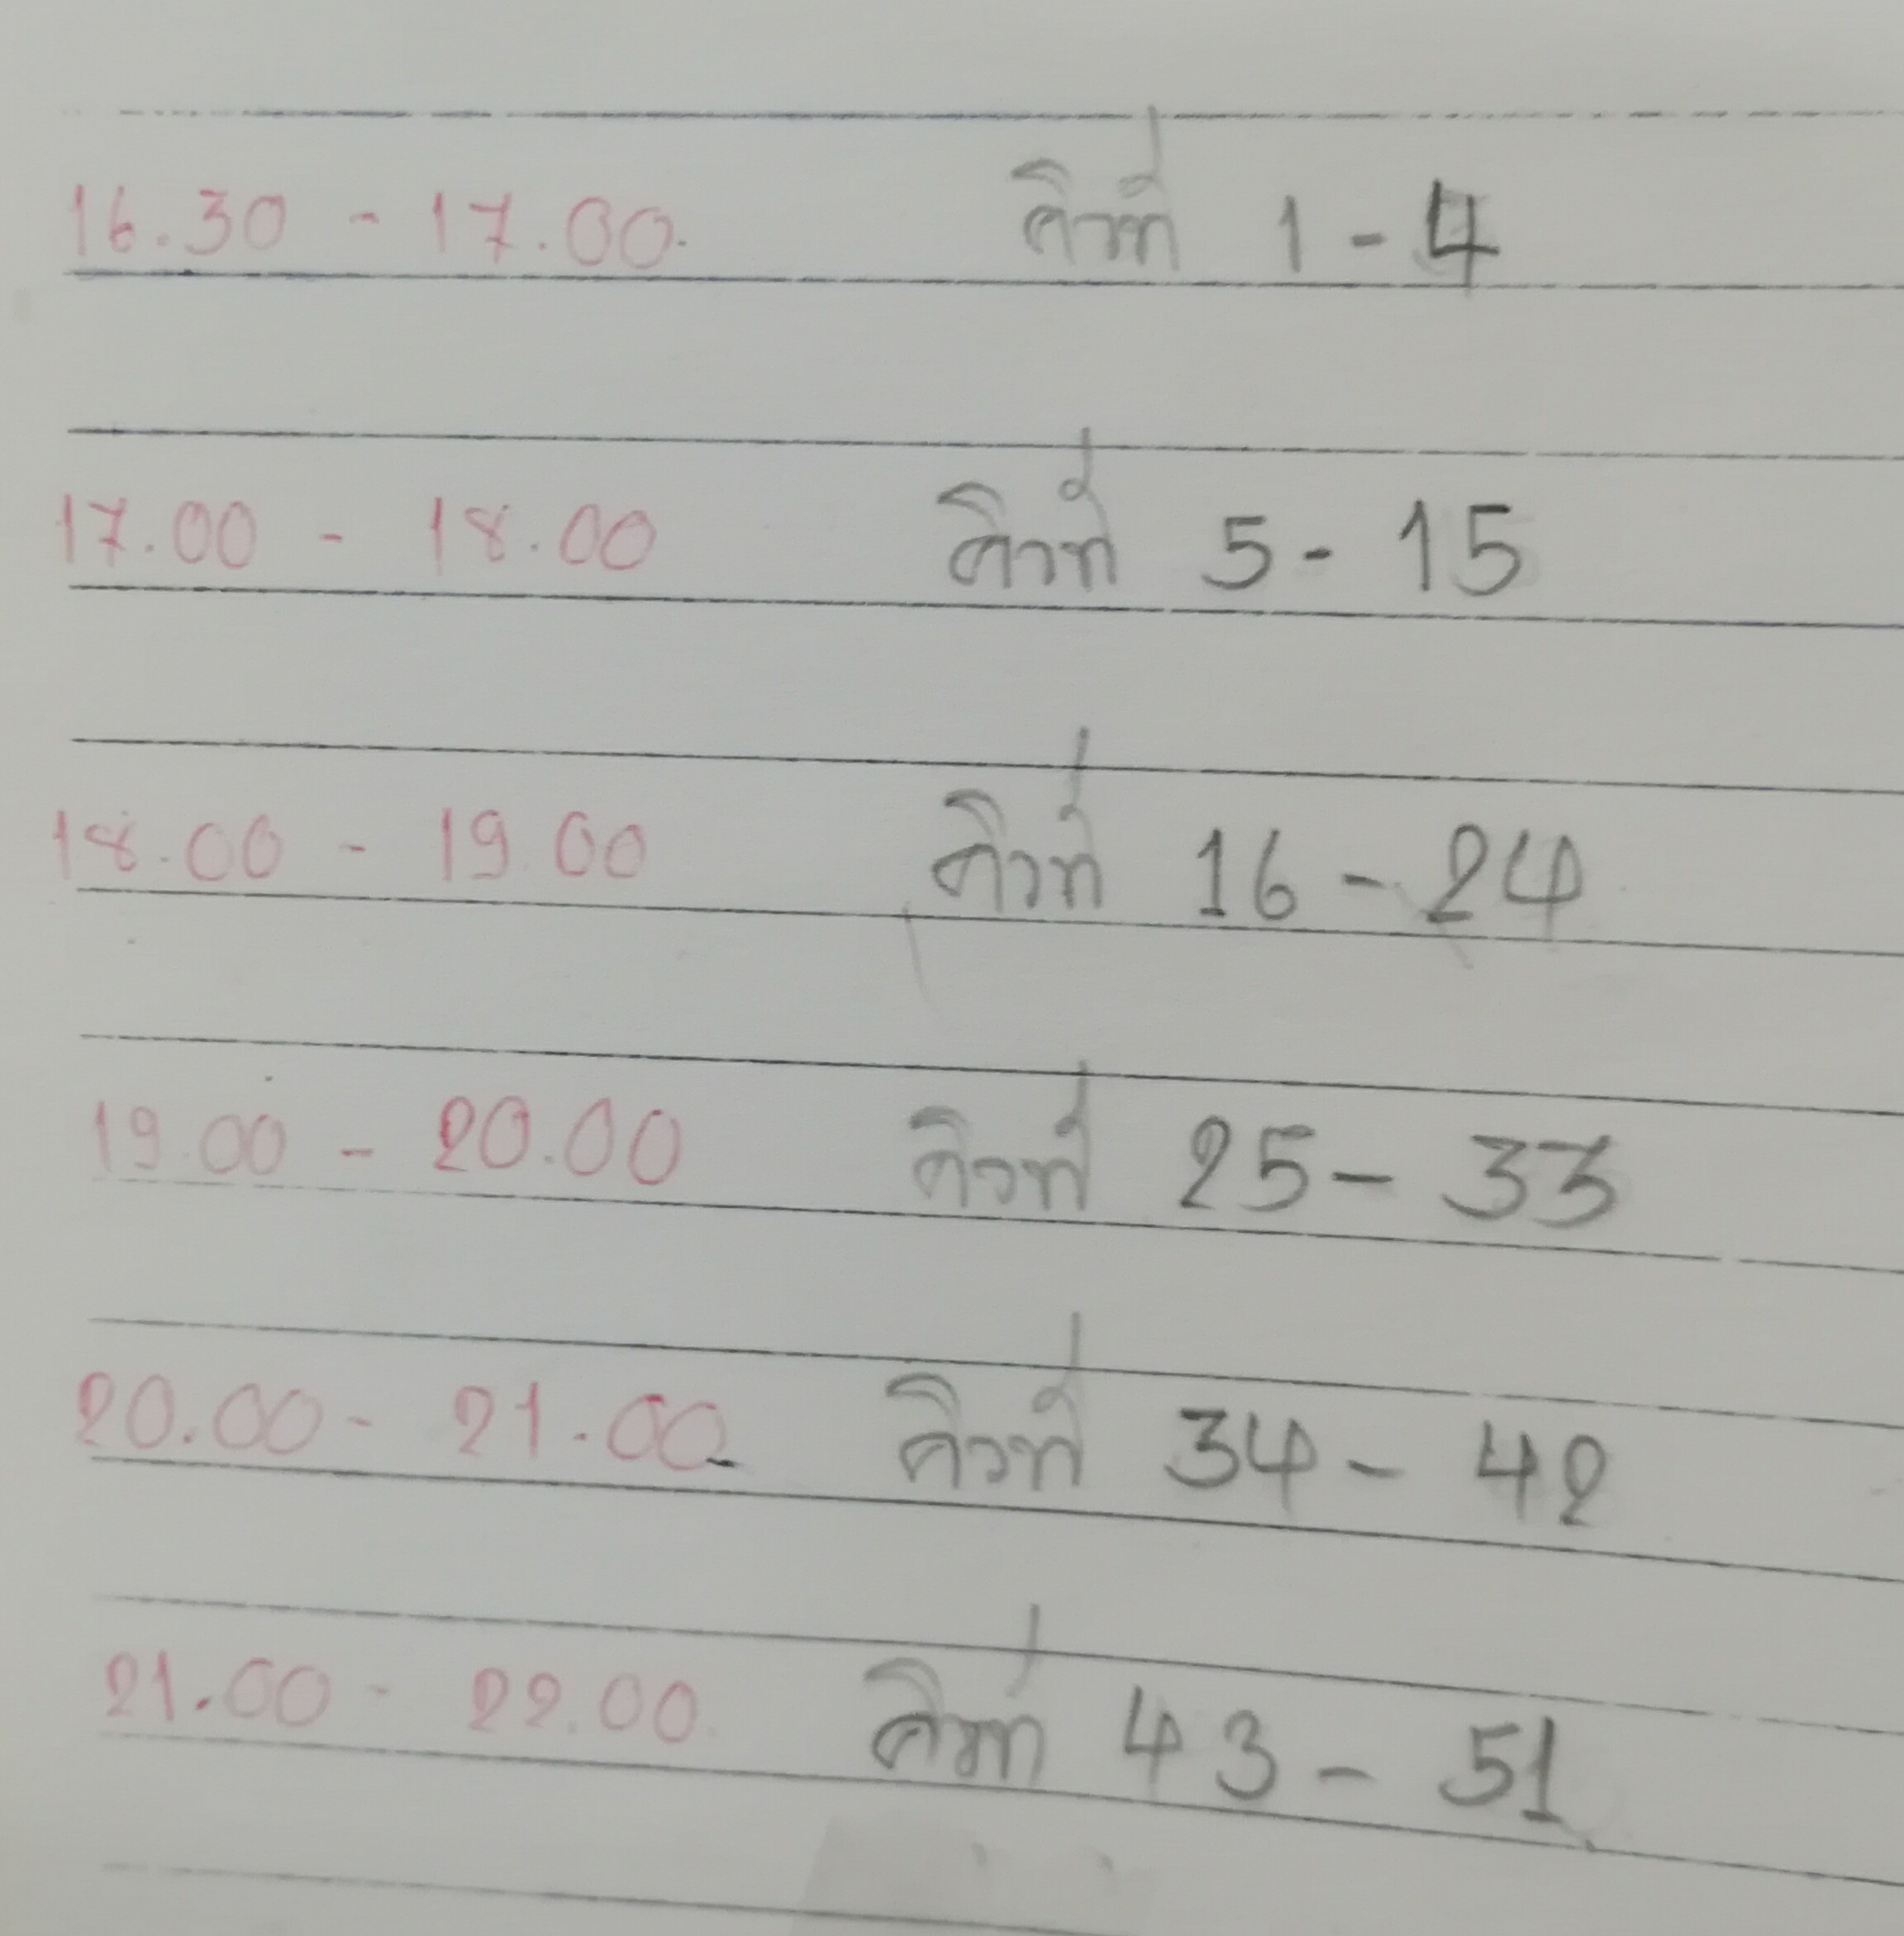 16.30 - 17.00 คิวที่ 1 - 4
17.00 - 18.00 คิวที่ 5 - 15
18.00 - 19.00 คิวที่ 16 - 24
19.00 - 20.00 คิวที่ 25 - 33
20.00 - 21.00 คิวที่ 34 - 42
21.00 - 22.00 คิวที่ 43 - 51